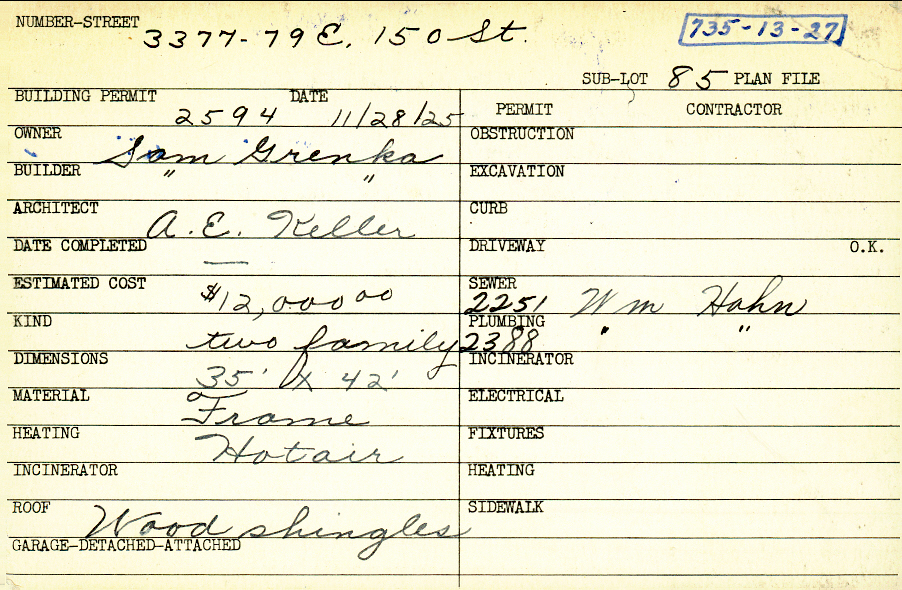 NUMBER-STREET
3377-79 E. 150 St.
735-13-27
SUB-LOT 85 PLAN FILE
BUILDING PERMIT DATE
2594 11/28/25
PERMIT CONTRACTOR
OWNER
Sam Grenka
OBSTRUCTION
BUILDER " "
EXCAVATION
ARCHITECT
A.E. Keller
CURB
DATE COMPLETED
—
DRIVEWAY O.K.
ESTIMATED COST
$12,000 00
SEWER
2251 Wm Hahn
KIND
two family
PLUMBING " "
2388
DIMENSIONS
35' X 42'
INCINERATOR
MATERIAL
Frame
ELECTRICAL
HEATING
Hotair
FIXTURES
INCINERATOR
HEATING
ROOF
Wood shingles
SIDEWALK
GARAGE-DETACHED-ATTACHED